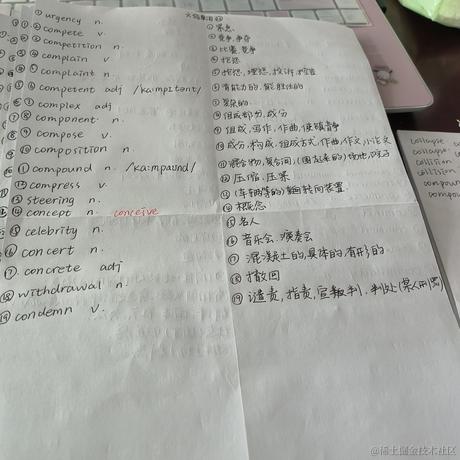 ① urgency n.
② compete v.
③ competition n.
④ complain v.
⑤ complaint n.
⑥ competent adj /ka:mpItent/
⑦ complex adj
⑧ component n.
⑨ compose v.
⑩ composition n.
⑪ compound n. /ka:mpaund/
⑫ compress v.
⑬ steering n.
⑭ concept n. conceive
⑮ celebrity n.
⑯ concert n.
⑰ concrete adj
⑱ withdrawal n.
⑲ condemn v.
① 紧急
② 竞争,争夺
③ 比赛,竞争
④ 抱怨
⑤ 抱怨,埋怨,投诉,控告
⑥ 有能力的,能胜任的
⑦ 复杂的
⑧ 组成部分,成分
⑨ 组成,写作,作曲,使镇静
⑩ 成分,构成,组成方式,作曲,作文,小作文
⑪ 混合物,复合词,(围起来的)场地,院子
⑫ 压缩,压紧
⑬ (车辆等的)转向装置
⑭ 概念
⑮ 名人
⑯ 音乐会,演奏会
⑰ 混凝土的,具体的,有形的
⑱ 撤回
⑲ 谴责,指责,宣判,判处(某人刑罚)
collapse
collapse
collision
collision
compound
@稀土掘金技术社区